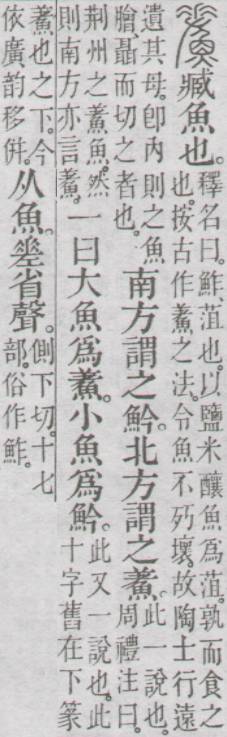 鮺臧魚也。釋名曰。鮓、菹也。以鹽米釀魚爲菹。孰而食之也。按古作鮺之法。令魚不㱙壞。故陶士行遠
遺其母。卽內則之魚膾。聶而切之者也。南方謂之䰼。北方謂之鮺。此一說也。周禮注曰。
荆州之鮺魚。然則南方亦言鮺。一曰大魚爲鮺。小魚爲䰼。此又一說也。此十字舊在下篆
鮺也之下。今依廣韵移倂。从魚。差省聲。側下切。十七部。俗作鮓。